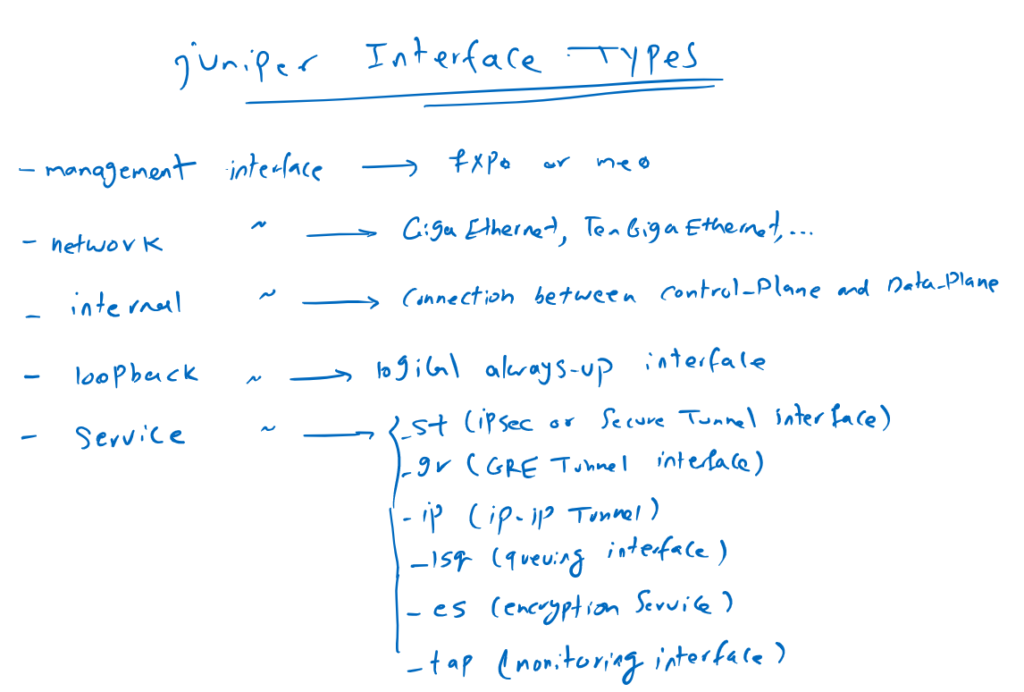 juniper Interface Types
- management interface → fxp0 or me0
- network ~ → Giga Ethernet, Ten Giga Ethernet,...
- internal ~ → Connection between control_Plane and Data_Plane
- loopback ~ → logical always-up interface
- Service ~ → { - st (ipsec or Secure Tunnel interface)
- gr (GRE Tunnel interface)
- ip (ip-ip Tunnel)
- lsq (queuing interface)
- es (encryption Service)
- tap (monitoring interface)